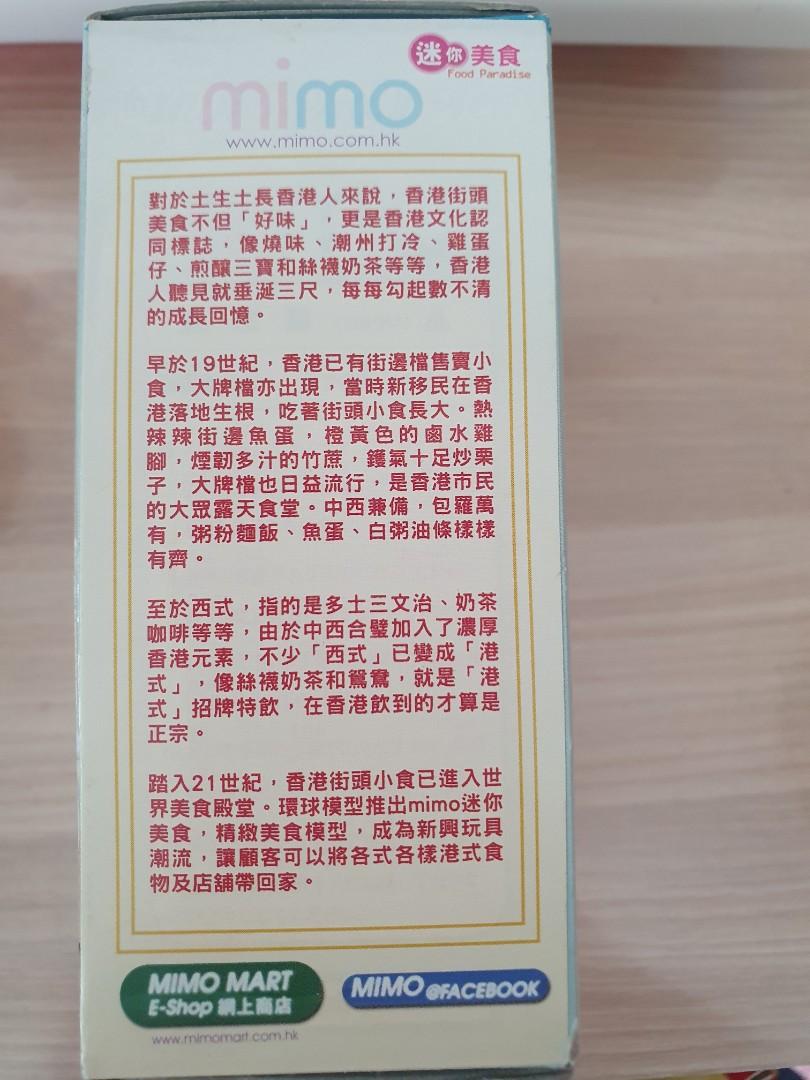 迷你美食
Food Paradise
mimo
www.mimo.com.hk
對於土生土長香港人來說，香港街頭
美食不但「好味」，更是香港文化認
同標誌，像燒味、潮州打冷、雞蛋
仔、煎釀三寶和絲襪奶茶等等，香港
人聽見就垂涎三尺，每每勾起數不清
的成長回憶。
早於19世紀，香港已有街邊檔售賣小
食，大牌檔亦出現，當時新移民在香
港落地生根，吃著街頭小食長大。熱
辣辣街邊魚蛋，橙黃色的鹵水雞
腳，煙韌多汁的竹蔗，鑊氣十足炒栗
子，大牌檔也日益流行，是香港市民
的大眾露天食堂。中西兼備，包羅萬
有，粥粉麵飯、魚蛋、白粥油條樣樣
有齊。
至於西式，指的是多士三文治、奶茶
咖啡等等，由於中西合璧加入了濃厚
香港元素，不少「西式」已變成「港
式」，像絲襪奶茶和鴛鴦，就是「港
式」招牌特飲，在香港飲到的才算是
正宗。
踏入21世紀，香港街頭小食已進入世
界美食殿堂。環球模型推出mimo迷你
美食，精緻美食模型，成為新興玩具
潮流，讓顧客可以將各式各樣港式食
物及店舖帶回家。
MIMO MART
E-Shop 網上商店
MIMO @FACEBOOK
www.mimomart.com.hk